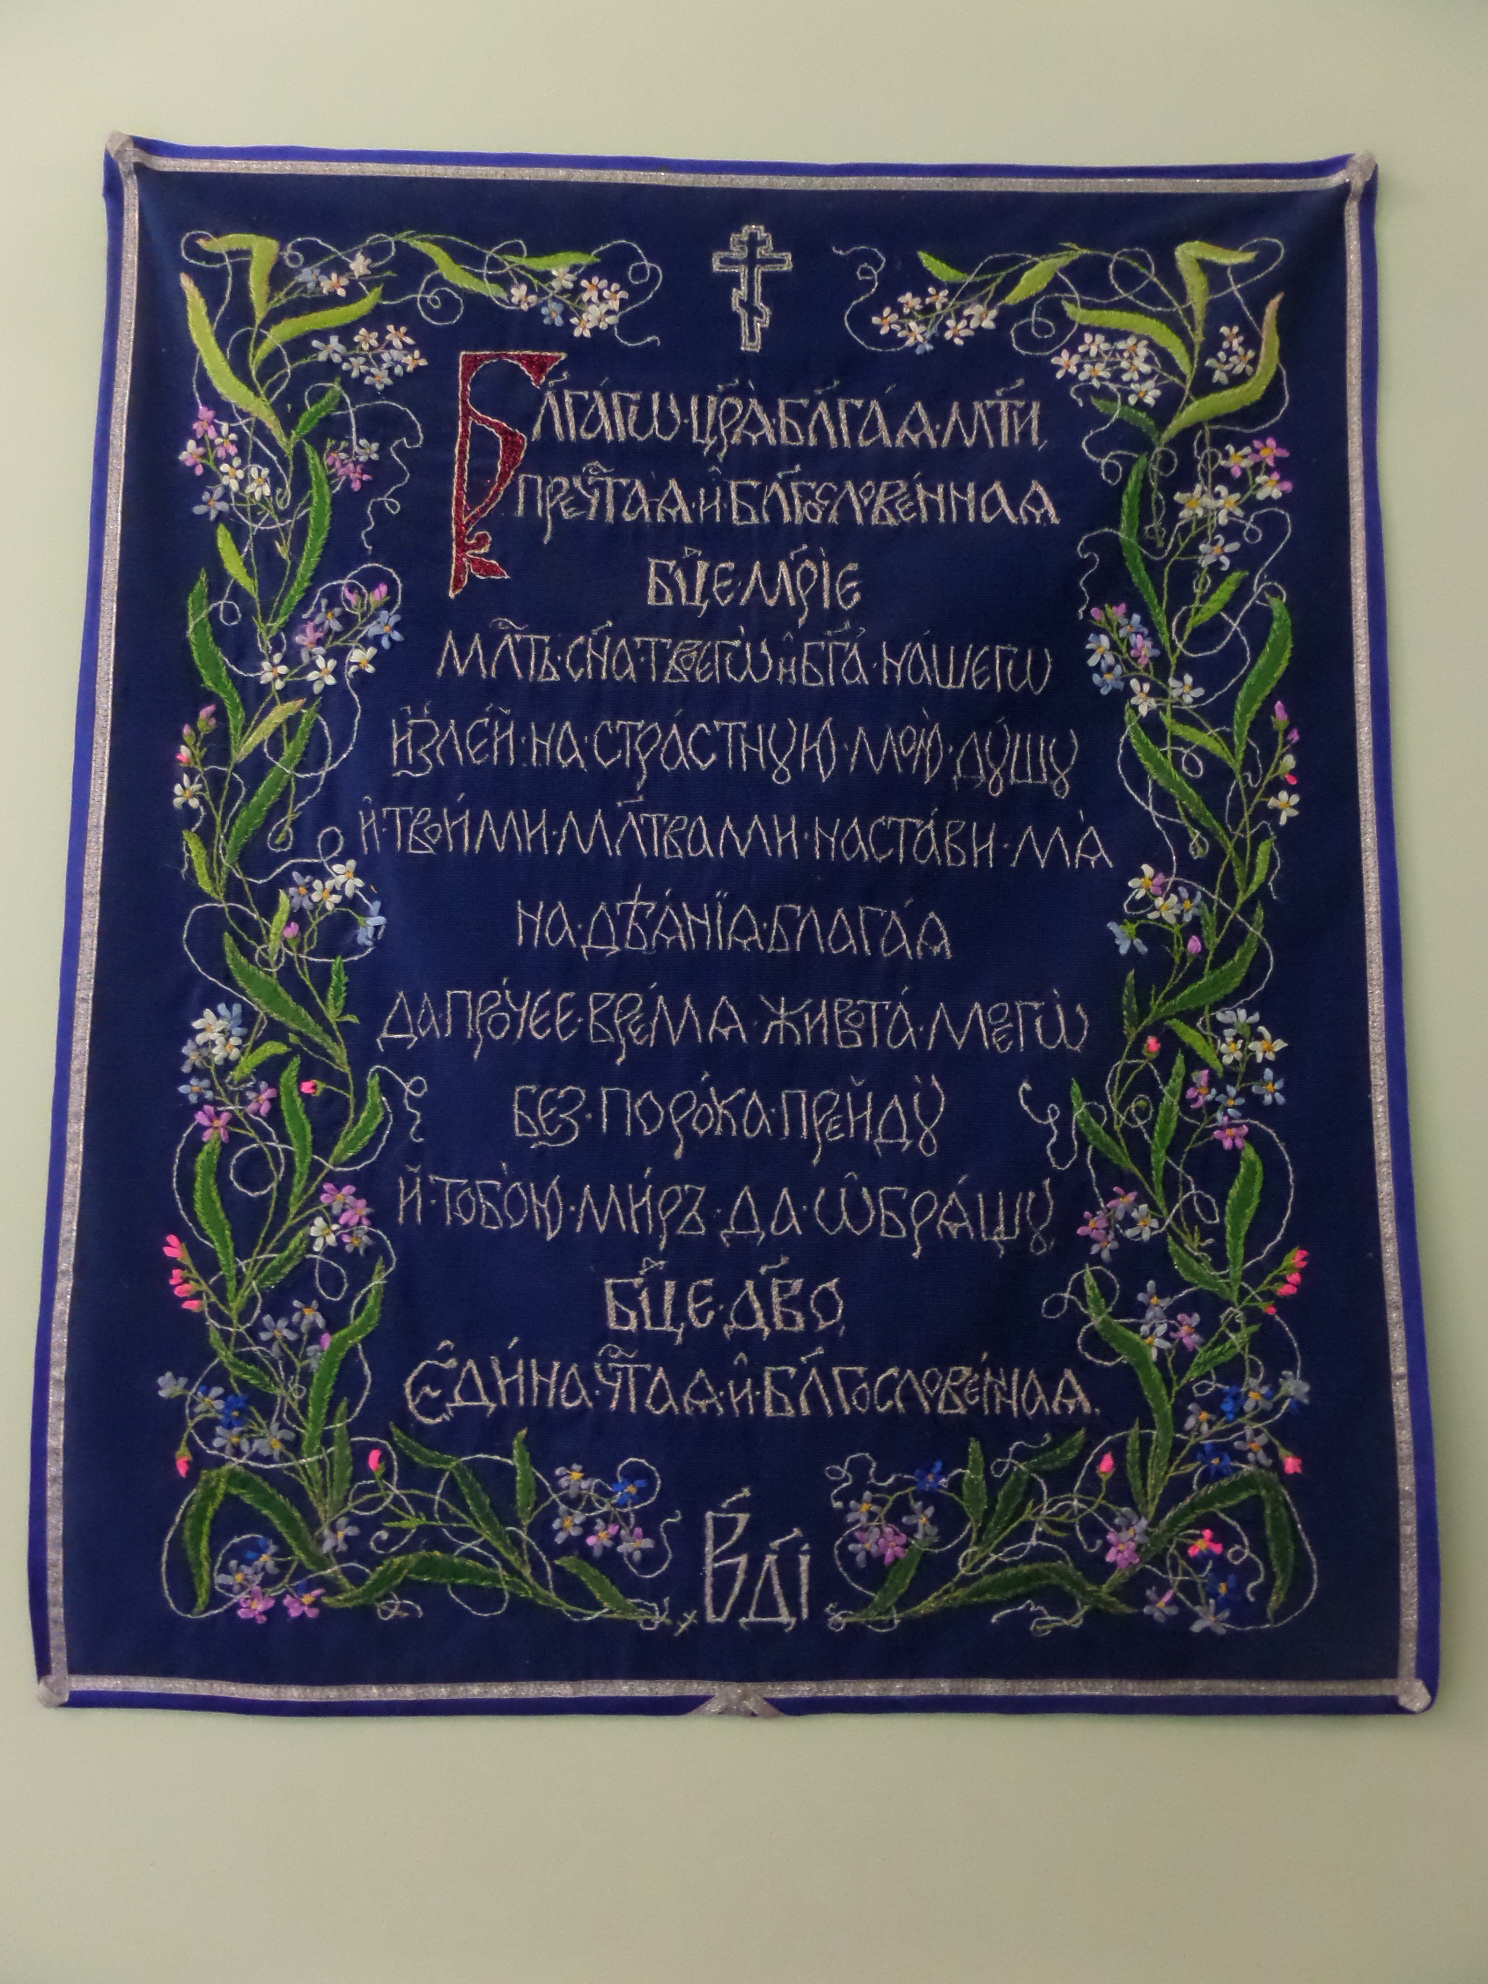 Бл҃га́гѡ · цр҃ѧ̀ · бл҃га́ѧ · мт҃и,
пречⷭ҇таѧ · и҆ · бл҃гослове́ннаѧ
бц҃е · мр҃і́е
млⷭ҇ть · сн҃а · твоегѡ̀ и҆ бг҃а · на́шегѡ
и҆зле́й · на · стра́стнꙋю · мою̀ · дꙋ́шꙋ
и҆ · твои́ми · мл҃твами · наста́ви · мѧ̀
на · дѣѧ́нїѧ · блага́ѧ
да · про́чее · вре́мѧ · живота́ · моегѡ̀
без · поро́ка · прейдꙋ̀
и҆ · тобо́ю · ми́ръ · да · ѡ҆брѧ́щꙋ
бц҃е · дв҃о,
є҆ди́на · чⷭ҇таѧ · и҆ · бл҃гослове́ннаѧ.
҂в҃ді